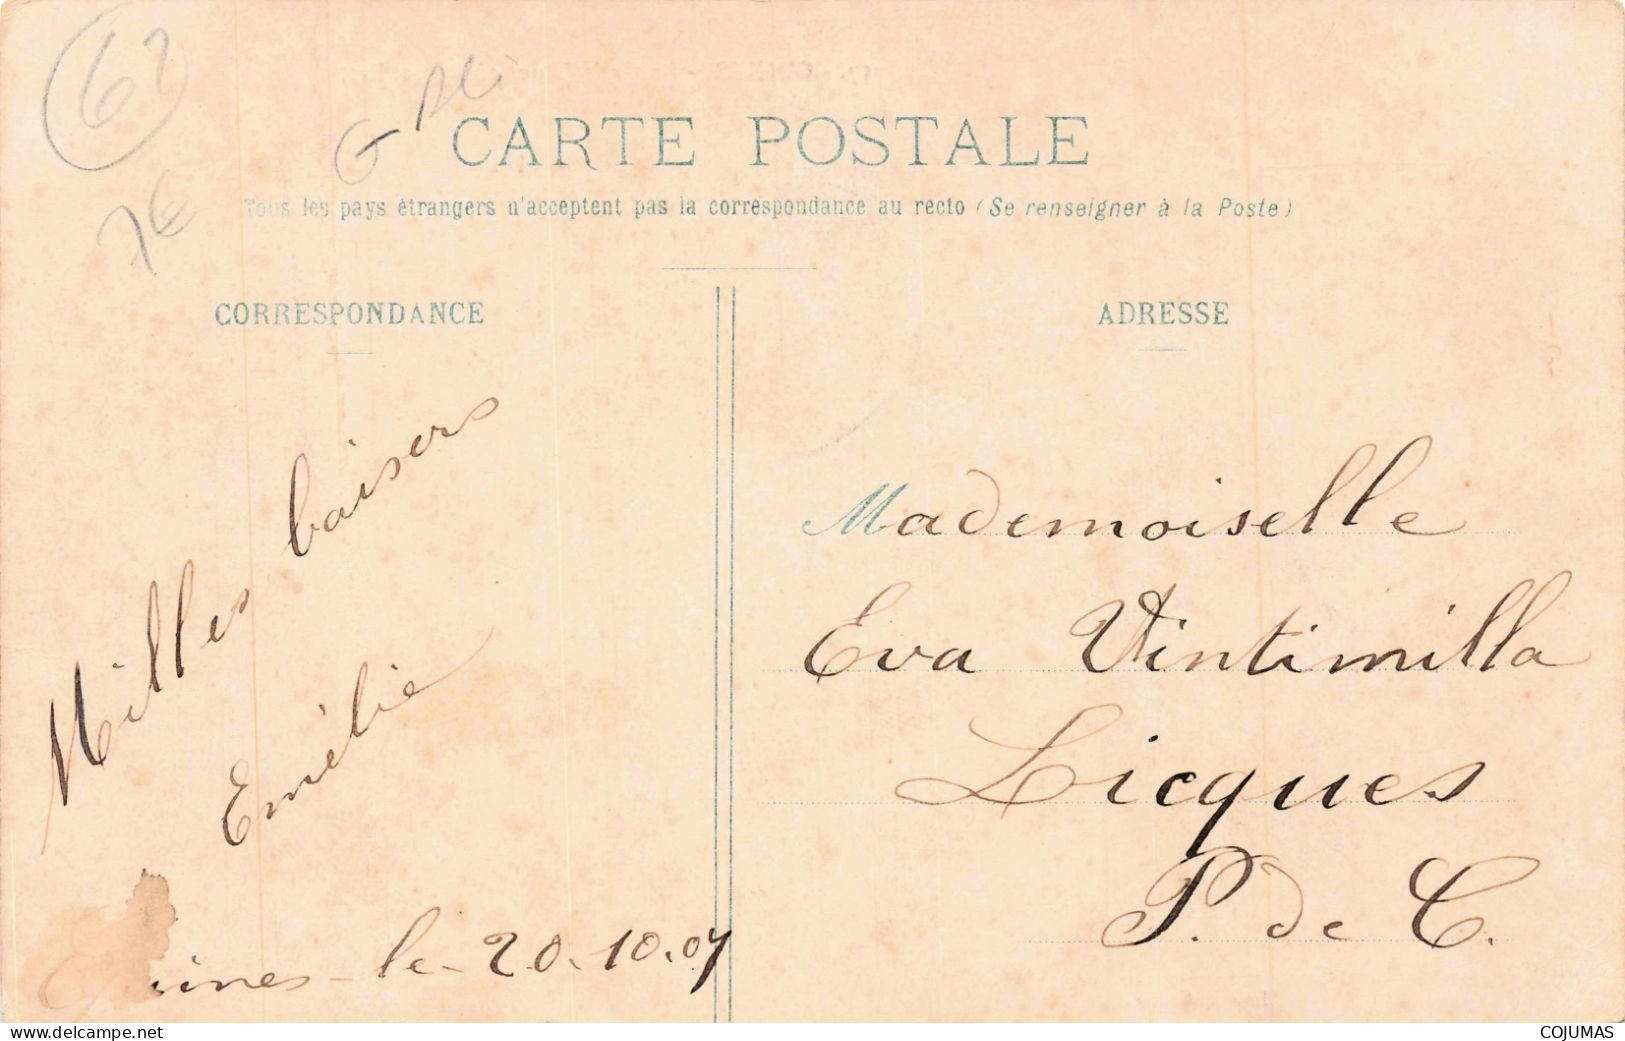 62
7€
CARTE POSTALE
Tous les pays étrangers n'acceptent pas la correspondance au recto (Se renseigner à la Poste)
CORRESPONDANCE
Milles baisers
Emélie
Guines - le - 20.10.07
ADRESSE
Mademoiselle
Eva Vintimilla
Licques
P. de C.
www.delcampe.net
COJUMAS